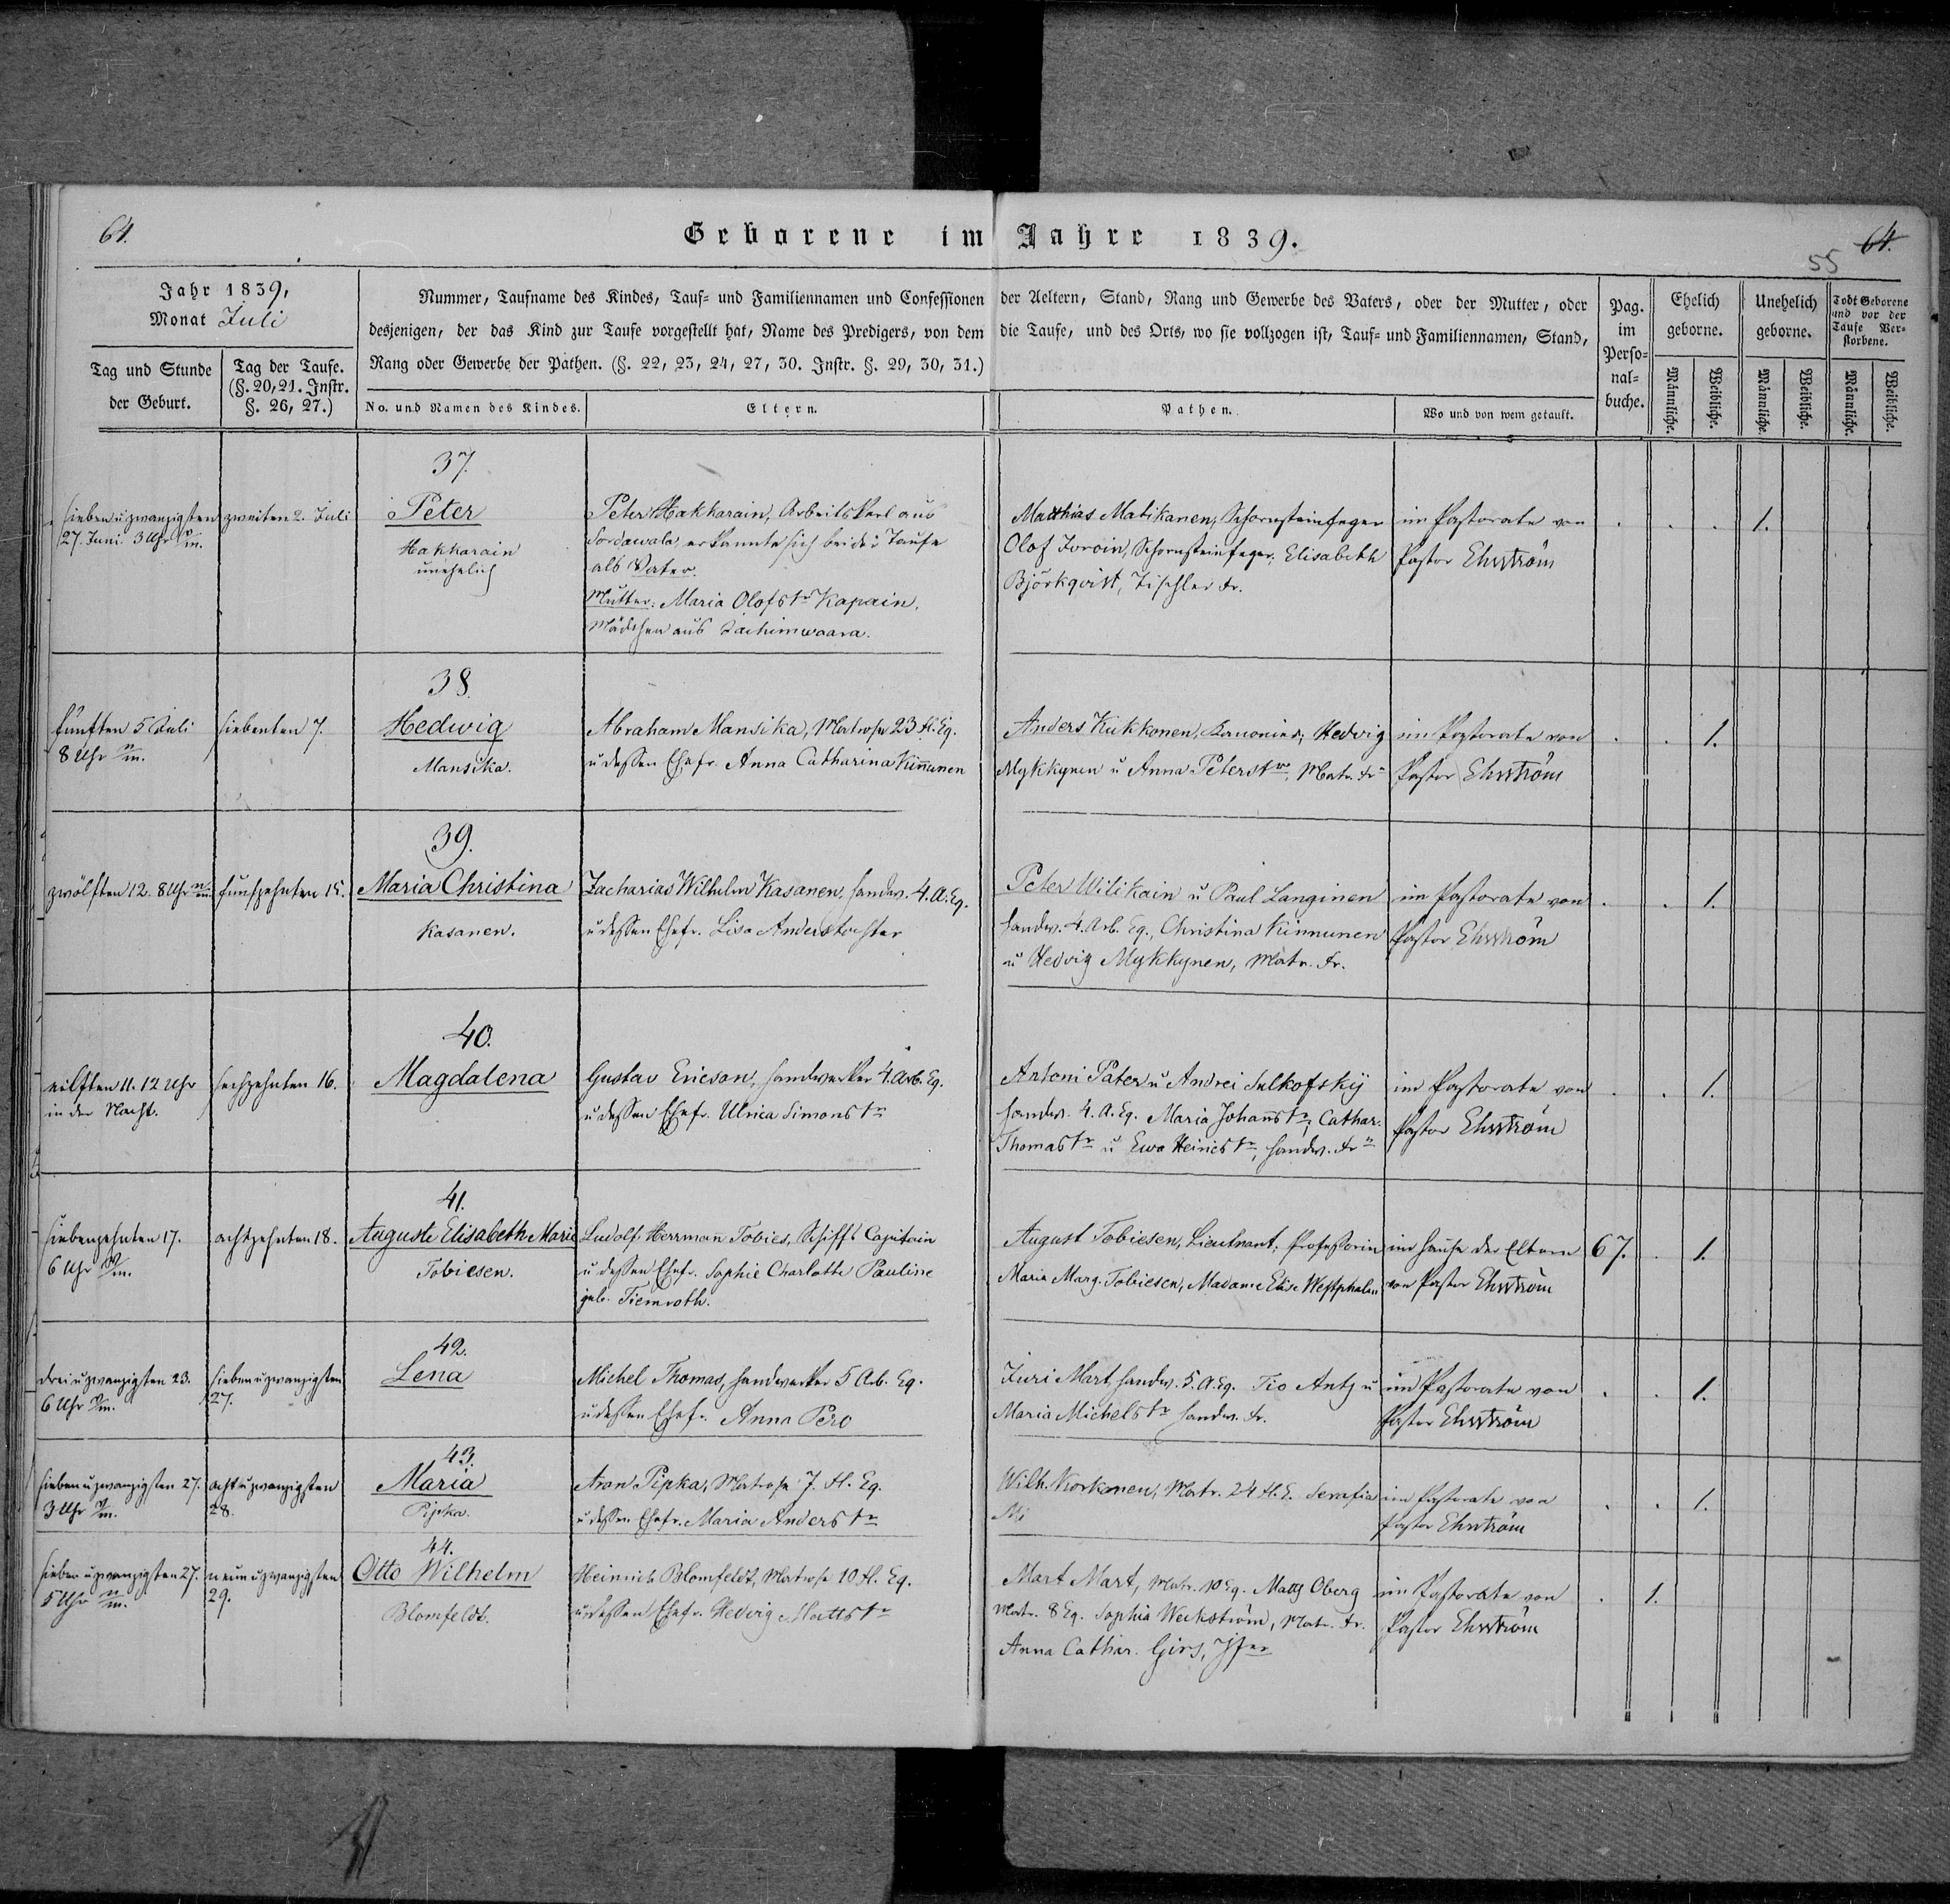 64.
Geborene im Jahre 1839.
64.
55
Jahr 1839,
Monat Juli
Tag und Stunde
der Geburt.
Tag der Taufe.
(§. 20, 21. Instr.
§. 26, 27.)
Nummer, Taufname des Kindes, Tauf= und Familiennamen und Confessionen der Aeltern, Stand, Rang und Gewerbe des Vaters, oder der Mutter, oder
desjenigen, der das Kind zur Taufe vorgestellt hat, Name des Predigers, von dem die Taufe, und des Orts, wo sie vollzogen ist, Tauf= und Familiennamen, Stand,
Rang oder Gewerbe der Pathen. (§. 22, 23, 24, 27, 30. Instr. §. 29, 30, 31.)
No. und Namen des Kindes.
Eltern.
Pathen.
Wo und von wem getauft.
Pag.
im
Perso=
nal=
buche.
Ehelich
geborne.
Unehelich
geborne.
Todt Geborene
und vor der
Taufe Ver=
storbene.
Männliche.
Weibliche.
Männliche.
Weibliche.
Männliche.
Weibliche.
sieben u zwanzigsten
27. Juni 3 Uhr
zweiten 2. Juli
37.
Peter
Hakkarain
unehelich
Peter Hakkarain, Arbeitskerl aus
Sordawala, erkannte sich bei der Taufe
als Vater.
Mutter: Maria Olofstr Kapain,
Mädchen aus
Matthias Matikanen, Schornsteinfeger
Olof Schornsteinfeger, Elisabeth
Björkqvist, Tischler Fr.
im Pastorate von
Pastor Ehrström
1.
fünften 5 Juli
8 Uhr
siebenten 7.
38.
Hedwig
Mansika.
Abraham Mansika, Matrose 23 Fl. Eq.
u dessen Ehefr. Anna Catharina Kinnunen
Anders Kukkonen, Kanonier, Hedwig
Mykkynen u Anna Peterstr, Matr. Fr
im Pastorate von
Pastor Ehrström
1.
zwölften 12. 8 Uhr
fünfzehnten 15.
39.
Maria Christina
Kasanen.
Zacharias Wilhelm Kasanen, Handw. 4. A. Eq.
u dessen Ehefr. Lisa Anderstochter
Peter Wilikain u Paul Langinen
Handw. 4. Arb. Eq., Christina Kinnunen
u Hedvig Mykkynen, Matr. Fr.
im Pastorate von
Pastor Ehrström
1.
eilften 11. 12 Uhr
in der Nacht.
sechzehnten 16.
40.
Magdalena
Gustav Ericson, Handwerker 4. Arb. Eq.
u dessen Ehefr. Ulrica Simonstr
Antoni Pater u Andrei Sulkofsky
Handw. 4. A. Eq. Maria Johanstr, Cathar.
Thomastr u Ewa Heinrstr, Handw. Fr
im Pastorate von
Pastor Ehrström
1.
siebenzehnten 17.
6 Uhr
achtzehnten 18.
41.
Auguste Elisabeth Marie
Tobiesen.
Ludolf Herrman Tobies, Schiffs Capitain
u dessen Ehefr. Sophie Charlotte Pauline
geb. Tiemroth.
August Tobiesen, Lieutnant, Professorin
Maria Marg. Tobiesen, Madame Elise Westphalen
im Hause der Eltern
von Pastor Ehrström
67.
1.
drei u zwanzigsten 23.
6 Uhr
sieben u zwanzigsten
27.
42.
Lena
Michel Thomas, Handwerker 5 Arb. Eq.
u dessen Ehefr. Anna Pero
Juri Mart Handw. 5. A. Eq. Tio Antz u
Maria Michelstr Handw. Fr.
im Pastorate von
Pastor Ehrström
1.
sieben u zwanzigsten 27.
3 Uhr
acht u zwanzigsten
28.
43.
Maria
Pipka.
Aron Pipka, Matrose 7. Fl. Eq.
u dessen Ehefr. Maria Anderstr
Wilh. Korkonen, Matr. 24 Fl. E. Serafia
im Pastorate von
Pastor Ehrström
1.
sieben u zwanzigsten 27.
5 Uhr
neun u zwanzigsten
29.
44.
Otto Wilhelm
Blomfeldt.
Heinrich Blomfeldt, Matrose 10 Fl. Eq.
u dessen Ehefr. Hedvig Mattstr
Mart Mart, Matr. 10 Eq. Matts Oberg
Matr. 8 Eq. Sophia Weckström, Matr. Fr.
Anna Cathar. Girs, Jfer
im Pastorate von
Pastor Ehrström
1.